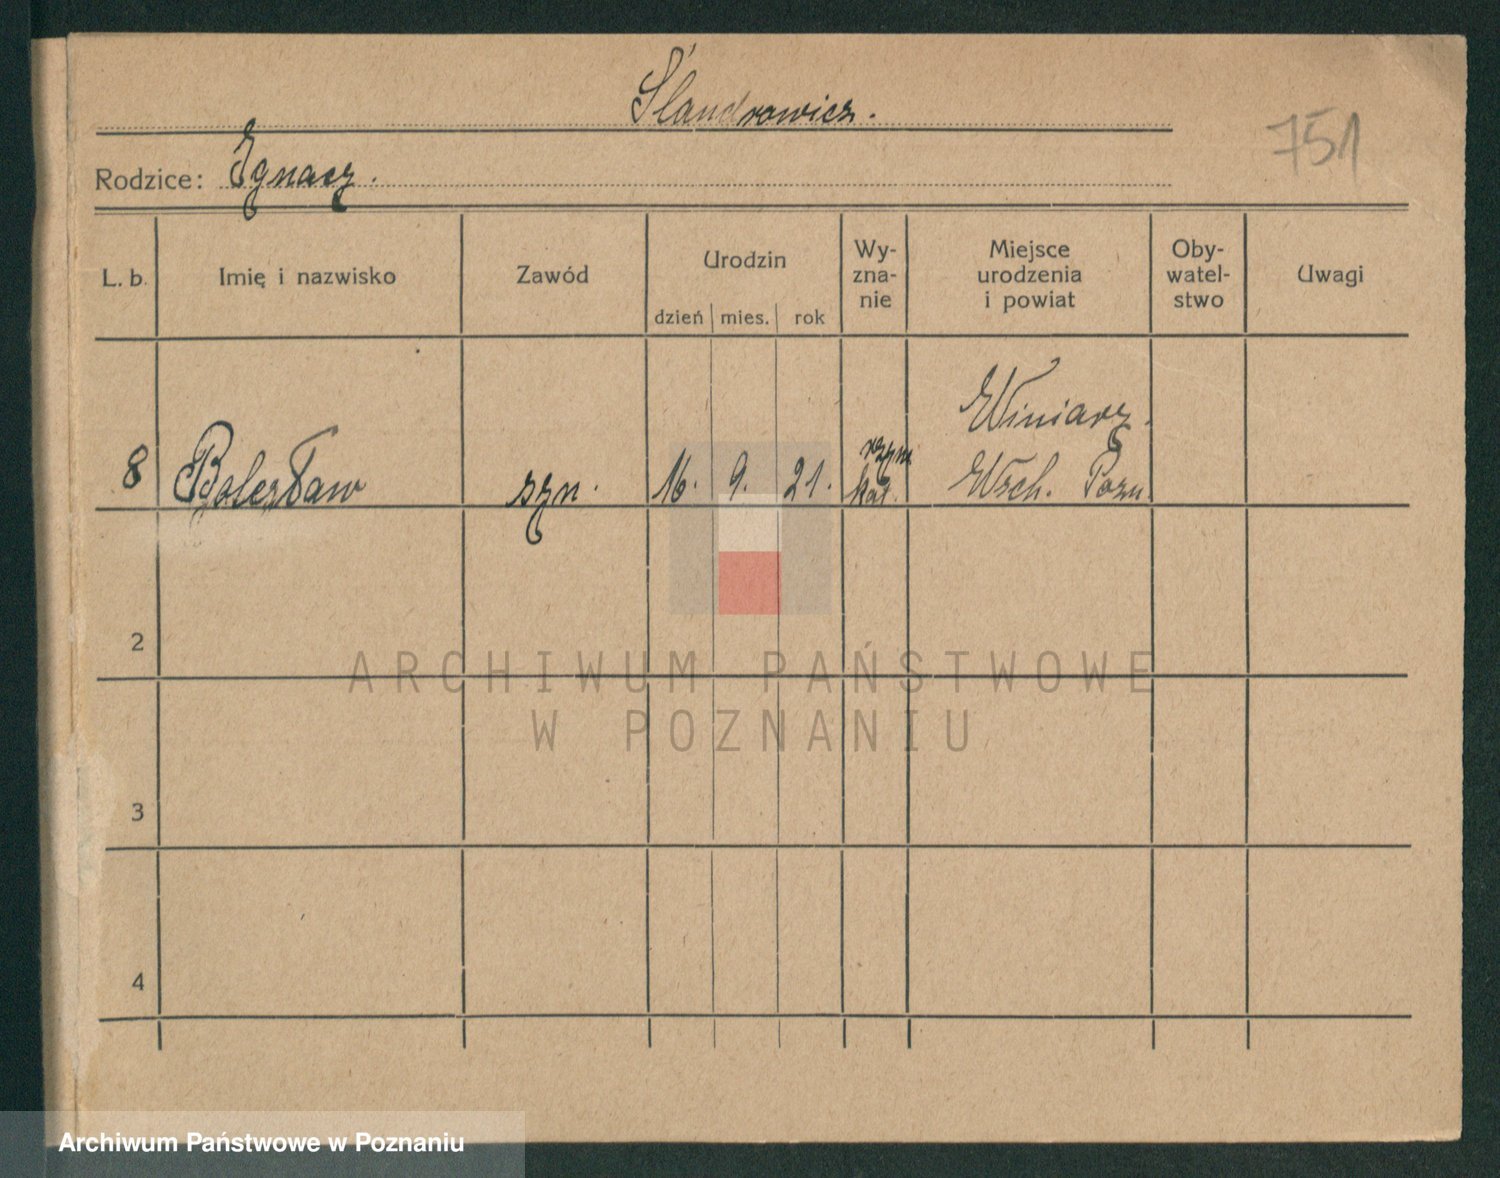 Ślandrowicz.
751
Rodzice: Ignacz.
L. b.
Imię i nazwisko
Zawód
Urodzin
dzień mies. rok
Wy-
zna-
nie
Miejsce
urodzenia
i powiat
Oby-
watel-
stwo
Uwagi
8 Bolesław syn. 16. 9. 21.
rzym
kat.
Winiary.
Wsch. Pozn
2
3
4
ARCHIWUM PAŃSTWOWE
W POZNANIU
Archiwum Państwowe w Poznaniu